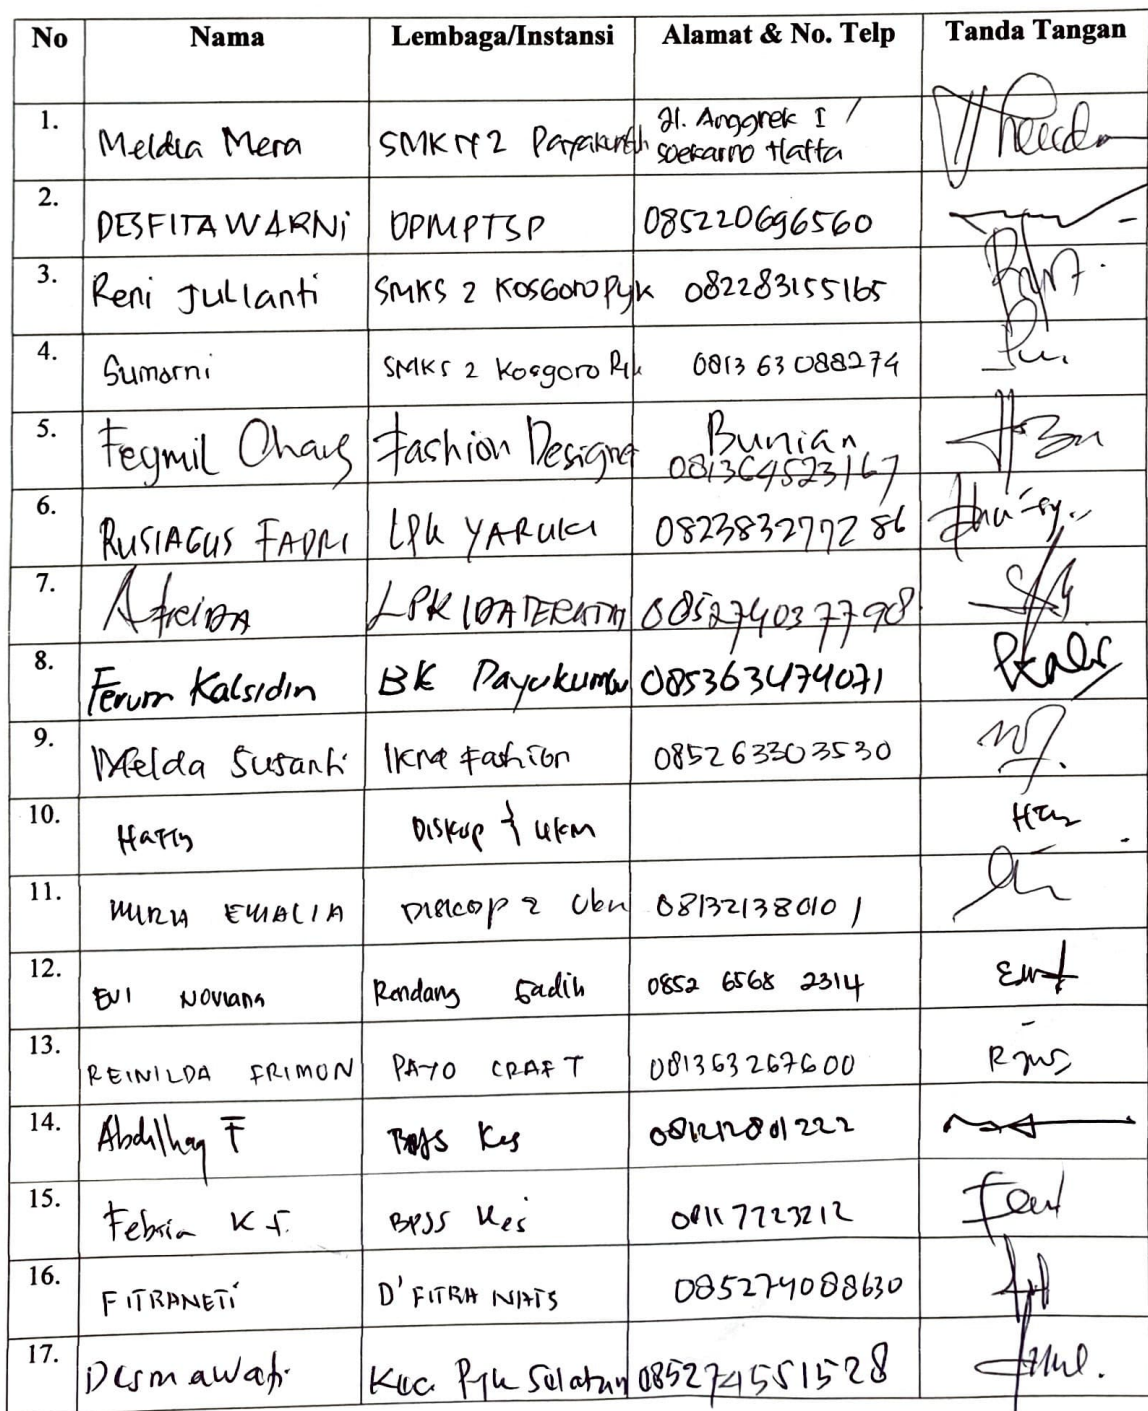 No Nama Lembaga/Instansi Alamat & No. Telp Tanda Tangan
1. Meldia Mera SMK N 2 Payakumbuh Jl. Anggrek I /
Soekarno Hatta
2. DESFITAWARNi DPMPTSP 085220696560
3. Reni Jullanti SMKS 2 KOSGORO Pyk 082283155165
4. Sumarni SMKS 2 Kosgoro Pyk 0813 63 088274
5. Fegmil Fashion Designer Bunian
081364523167
6. RUSIAGUS FADRI LPK YARUKI 082383277286
7. LPK 085274037798
8. Ferum Kalsidin BK Payakumbu 085363474071
9. Melda Susanti Ikna Fashion 085263303530
10. Hatty Diskop & UKM
11. EMALIA 081321380101
12. EVI NOVIANA Rendang Gadih 0852 6568 2314
13. REINILDA FRIMON PAYO CRAFT 081363267600
14. Abdilhaq F BPJS Kes 081212801222
15. Febria K F. BPJS Kes 08117723212
16. FITRANETi D' FITRA NATS 085274088630
17. Desmawati Kec. Pyk Selatan 085274551528